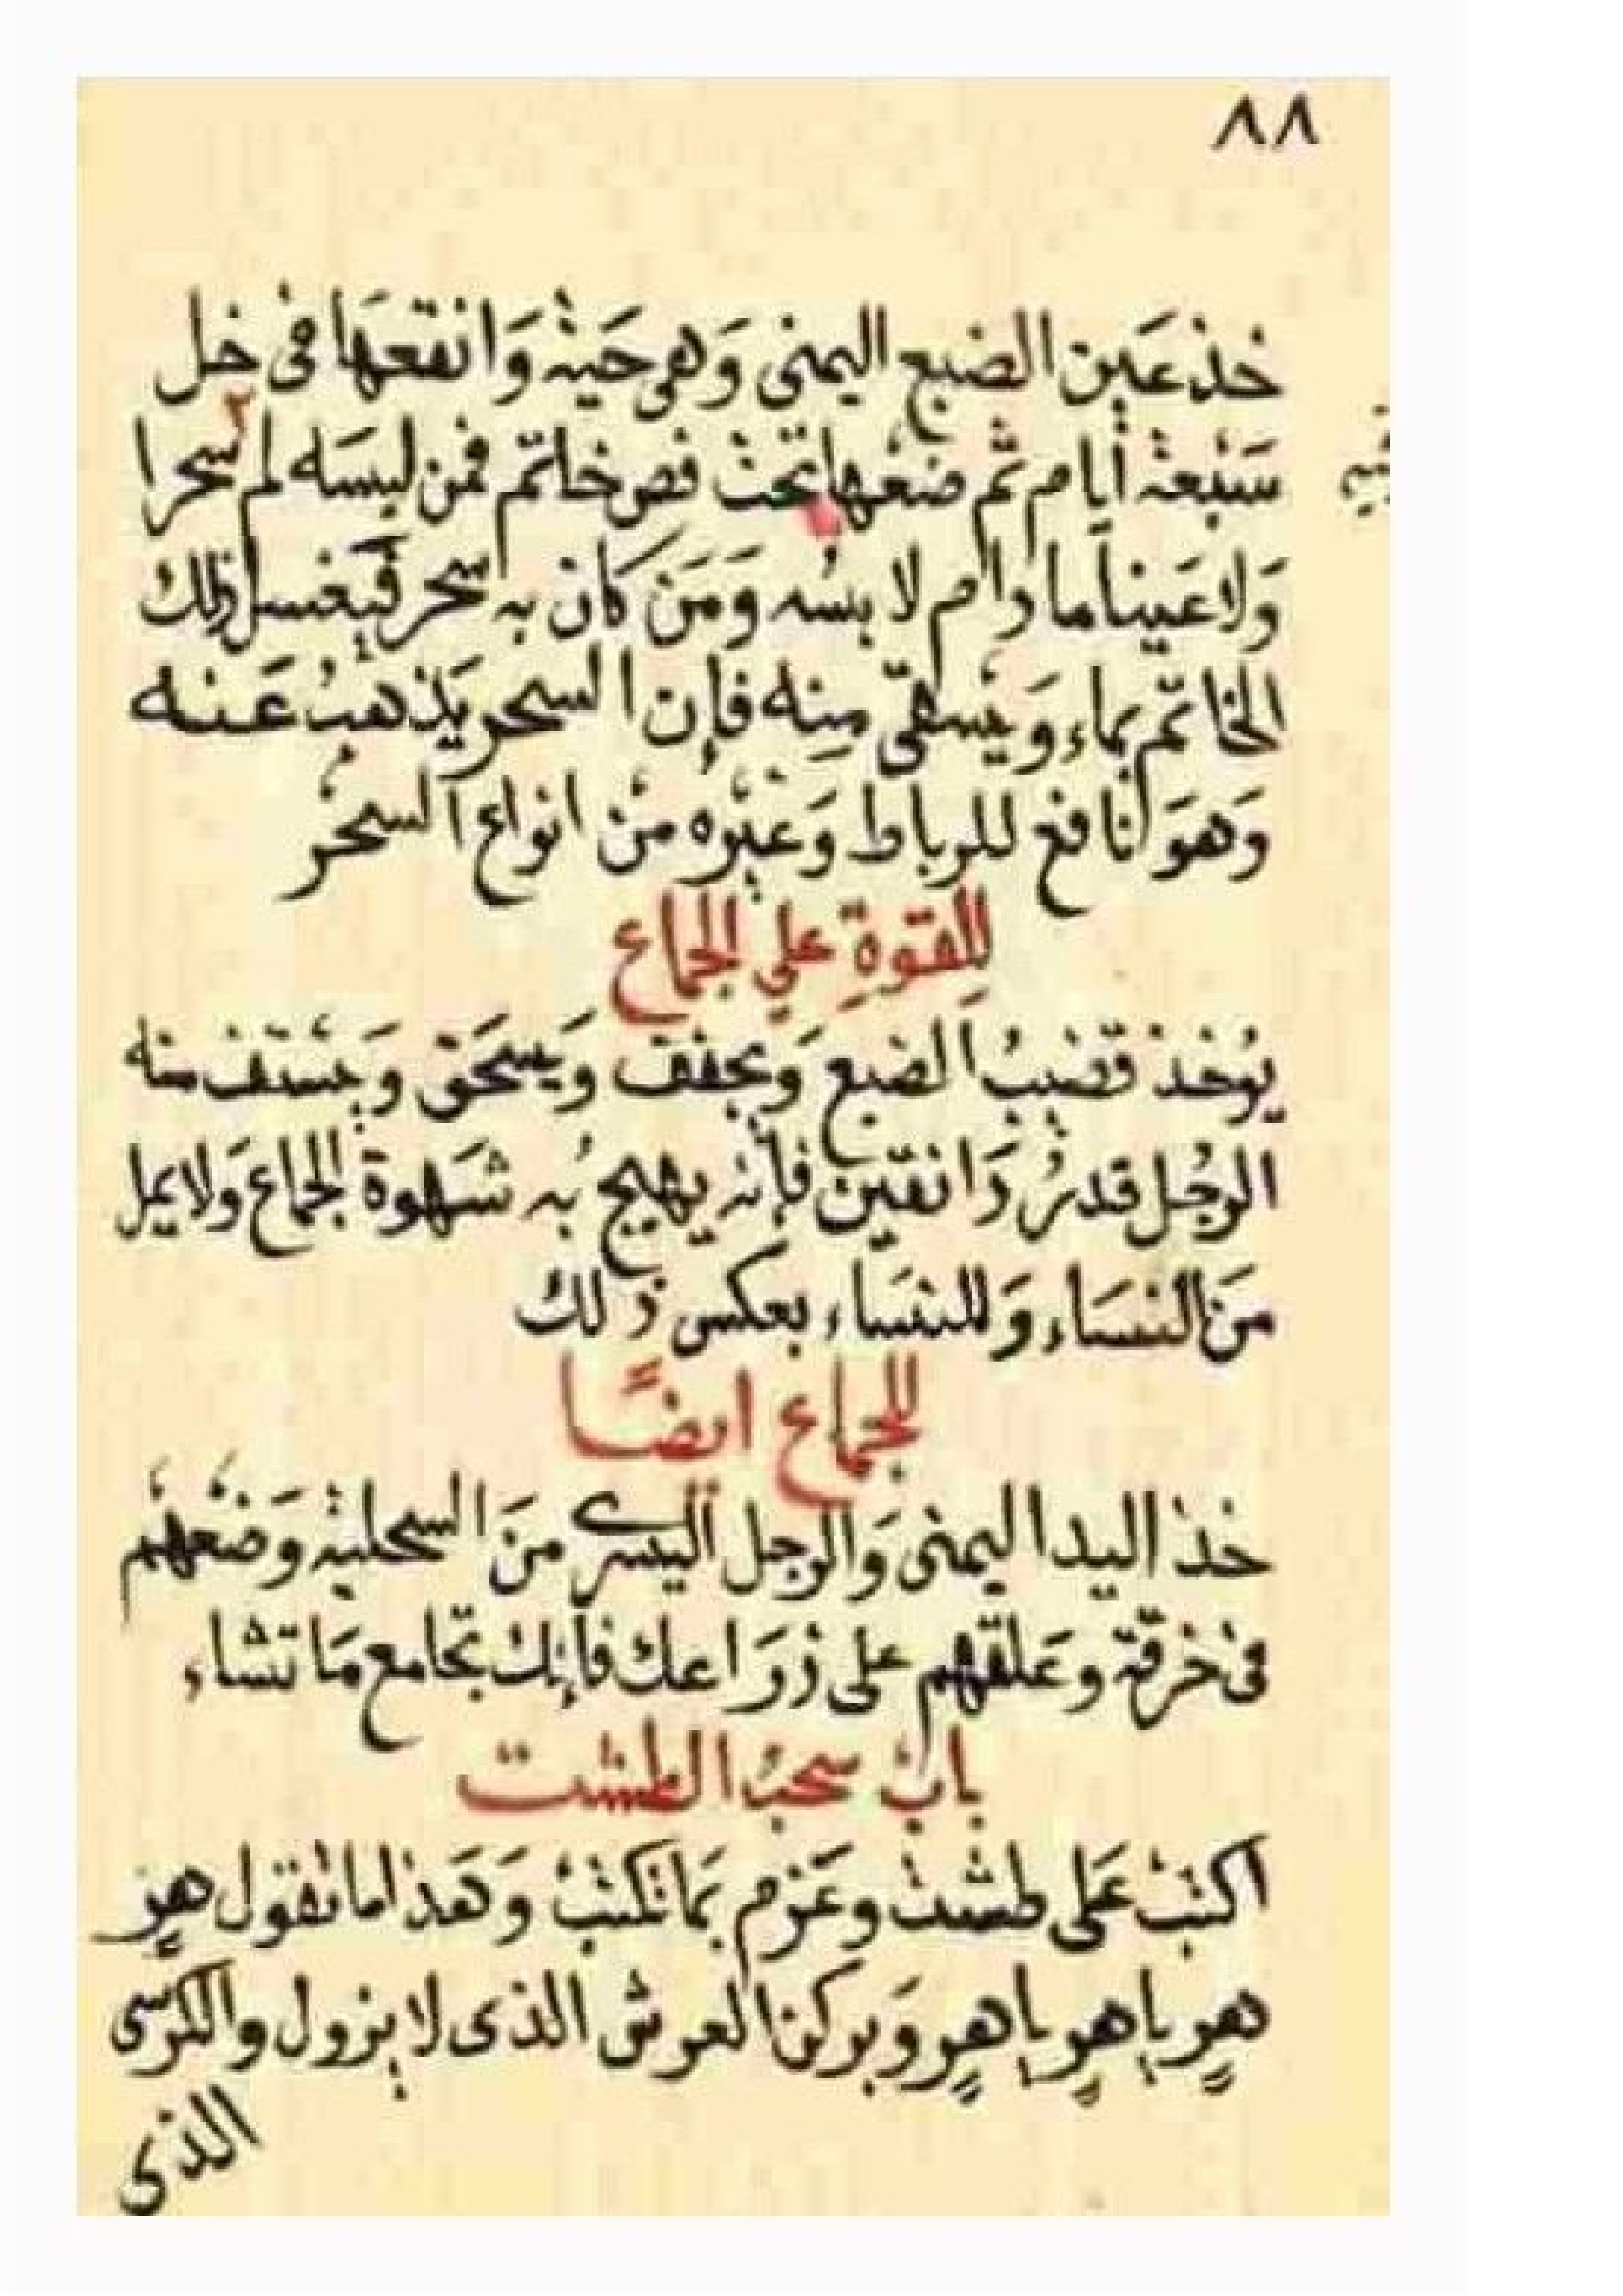 ٨٨
خذ عَين الضبع اليمنى وَهى حَيَة وَانقعهَا فى خل
سَبْعة أيام ثم ضعها تحت فص خاتم فمن لبسَه لم سحرا
وَلا عَيناً ما دام لا بسُه وَمَن كان به سحر فيغسل ذلك
الخاتم بماء وَيسقى منه فإن السحر يَذهبُ عَنه
وَهوَ نافع للرباط وَغيْره منْ انواع السحر
لِلقوةِ علي الجماع
يوخذ قضيبُ الضبع وَيجفف وَيسحَق وَيستف منه
الرجُل قدرُ دَانقين فإنه يهيج به شهوة الجماع وَلا يمل
مَن النسَاء وَللنسَاء بعكس ذلك
للجماع ايضًا
خذ اليد اليمنى وَالرجل اليسرى منَ السحلية وَضعهُم
فى خرقة وعَلقهم على ذرَاعك فإنك تجامع مَا تشاء
باب سحبُ الطشت
اكتبْ عَلى طشت وعَزم بمَا تكتبُ وَهَذا ما تقول هٍر
هٍر يا هٍر يا هٍر وَبركن العرش الذى لا يزول والكرسى
الذى